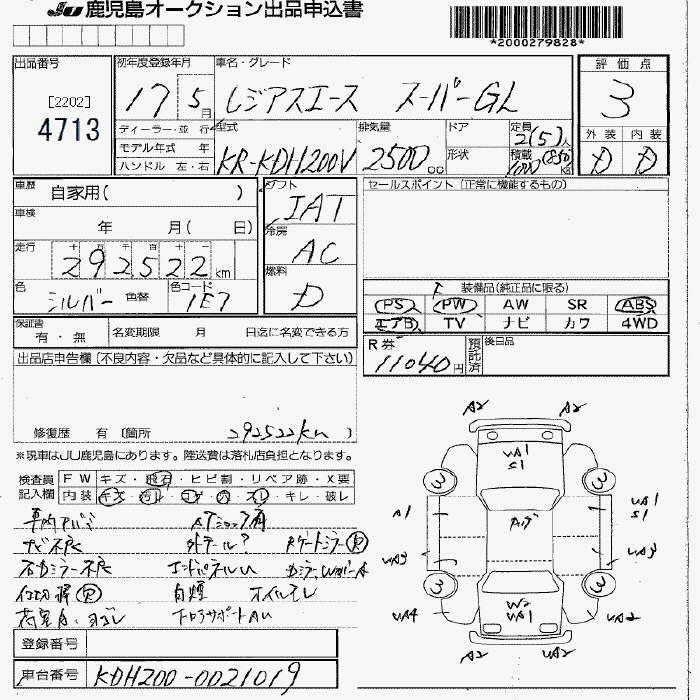 JU 鹿児島オークション出品申込書
*2000279828*
出品番号
[2202]
4713
初年度登録年月
17 5月
車名・グレード
レジアスエース スーパーGL
評価点
3
外装 内装
D D
ディーラー・並行
モデル年式 年
ハンドル 左・右
型式
KR-KDH200V
排気量
2500 cc
ドア
形状
定員
2(5)人
積載
車歴
自家用( )
車検
年 月( 日)
走行
292522 km
色
シルバー 色替
色コード
1E7
シフト
IAT
冷房
AC
燃料
D
セールスポイント (正常に機能するもの)
装備品(純正品に限る)
PS PW AW SR ABS
エアB TV ナビ カワ 4WD
保証書
有・無
名変期限 月 日迄に名変できる方
R券
11040円
預託済
後日品
出品店申告欄 (不良内容・欠品など具体的に記入して下さい)
修復歴 有 (箇所 292522km )
※現車はJU鹿児島にあります。陸送費は落札店負担となります。
検査員記入欄
FW キズ・飛石・ヒビ割・リペア跡・X要
内装 キズ・汚レ・コゲ・穴・スレ・キレ・破レ
ナビ不良 外テール?
左カミラー不良 エンドパネルU
オイルモレ
コアサポートAU
A2 A2
UA1
S1
3 3
A1
UA1
S1
UA3 UA3
3 3
UA4
W2
UA1
UA2
UA2
登録番号
車台番号 KDH200-0021019